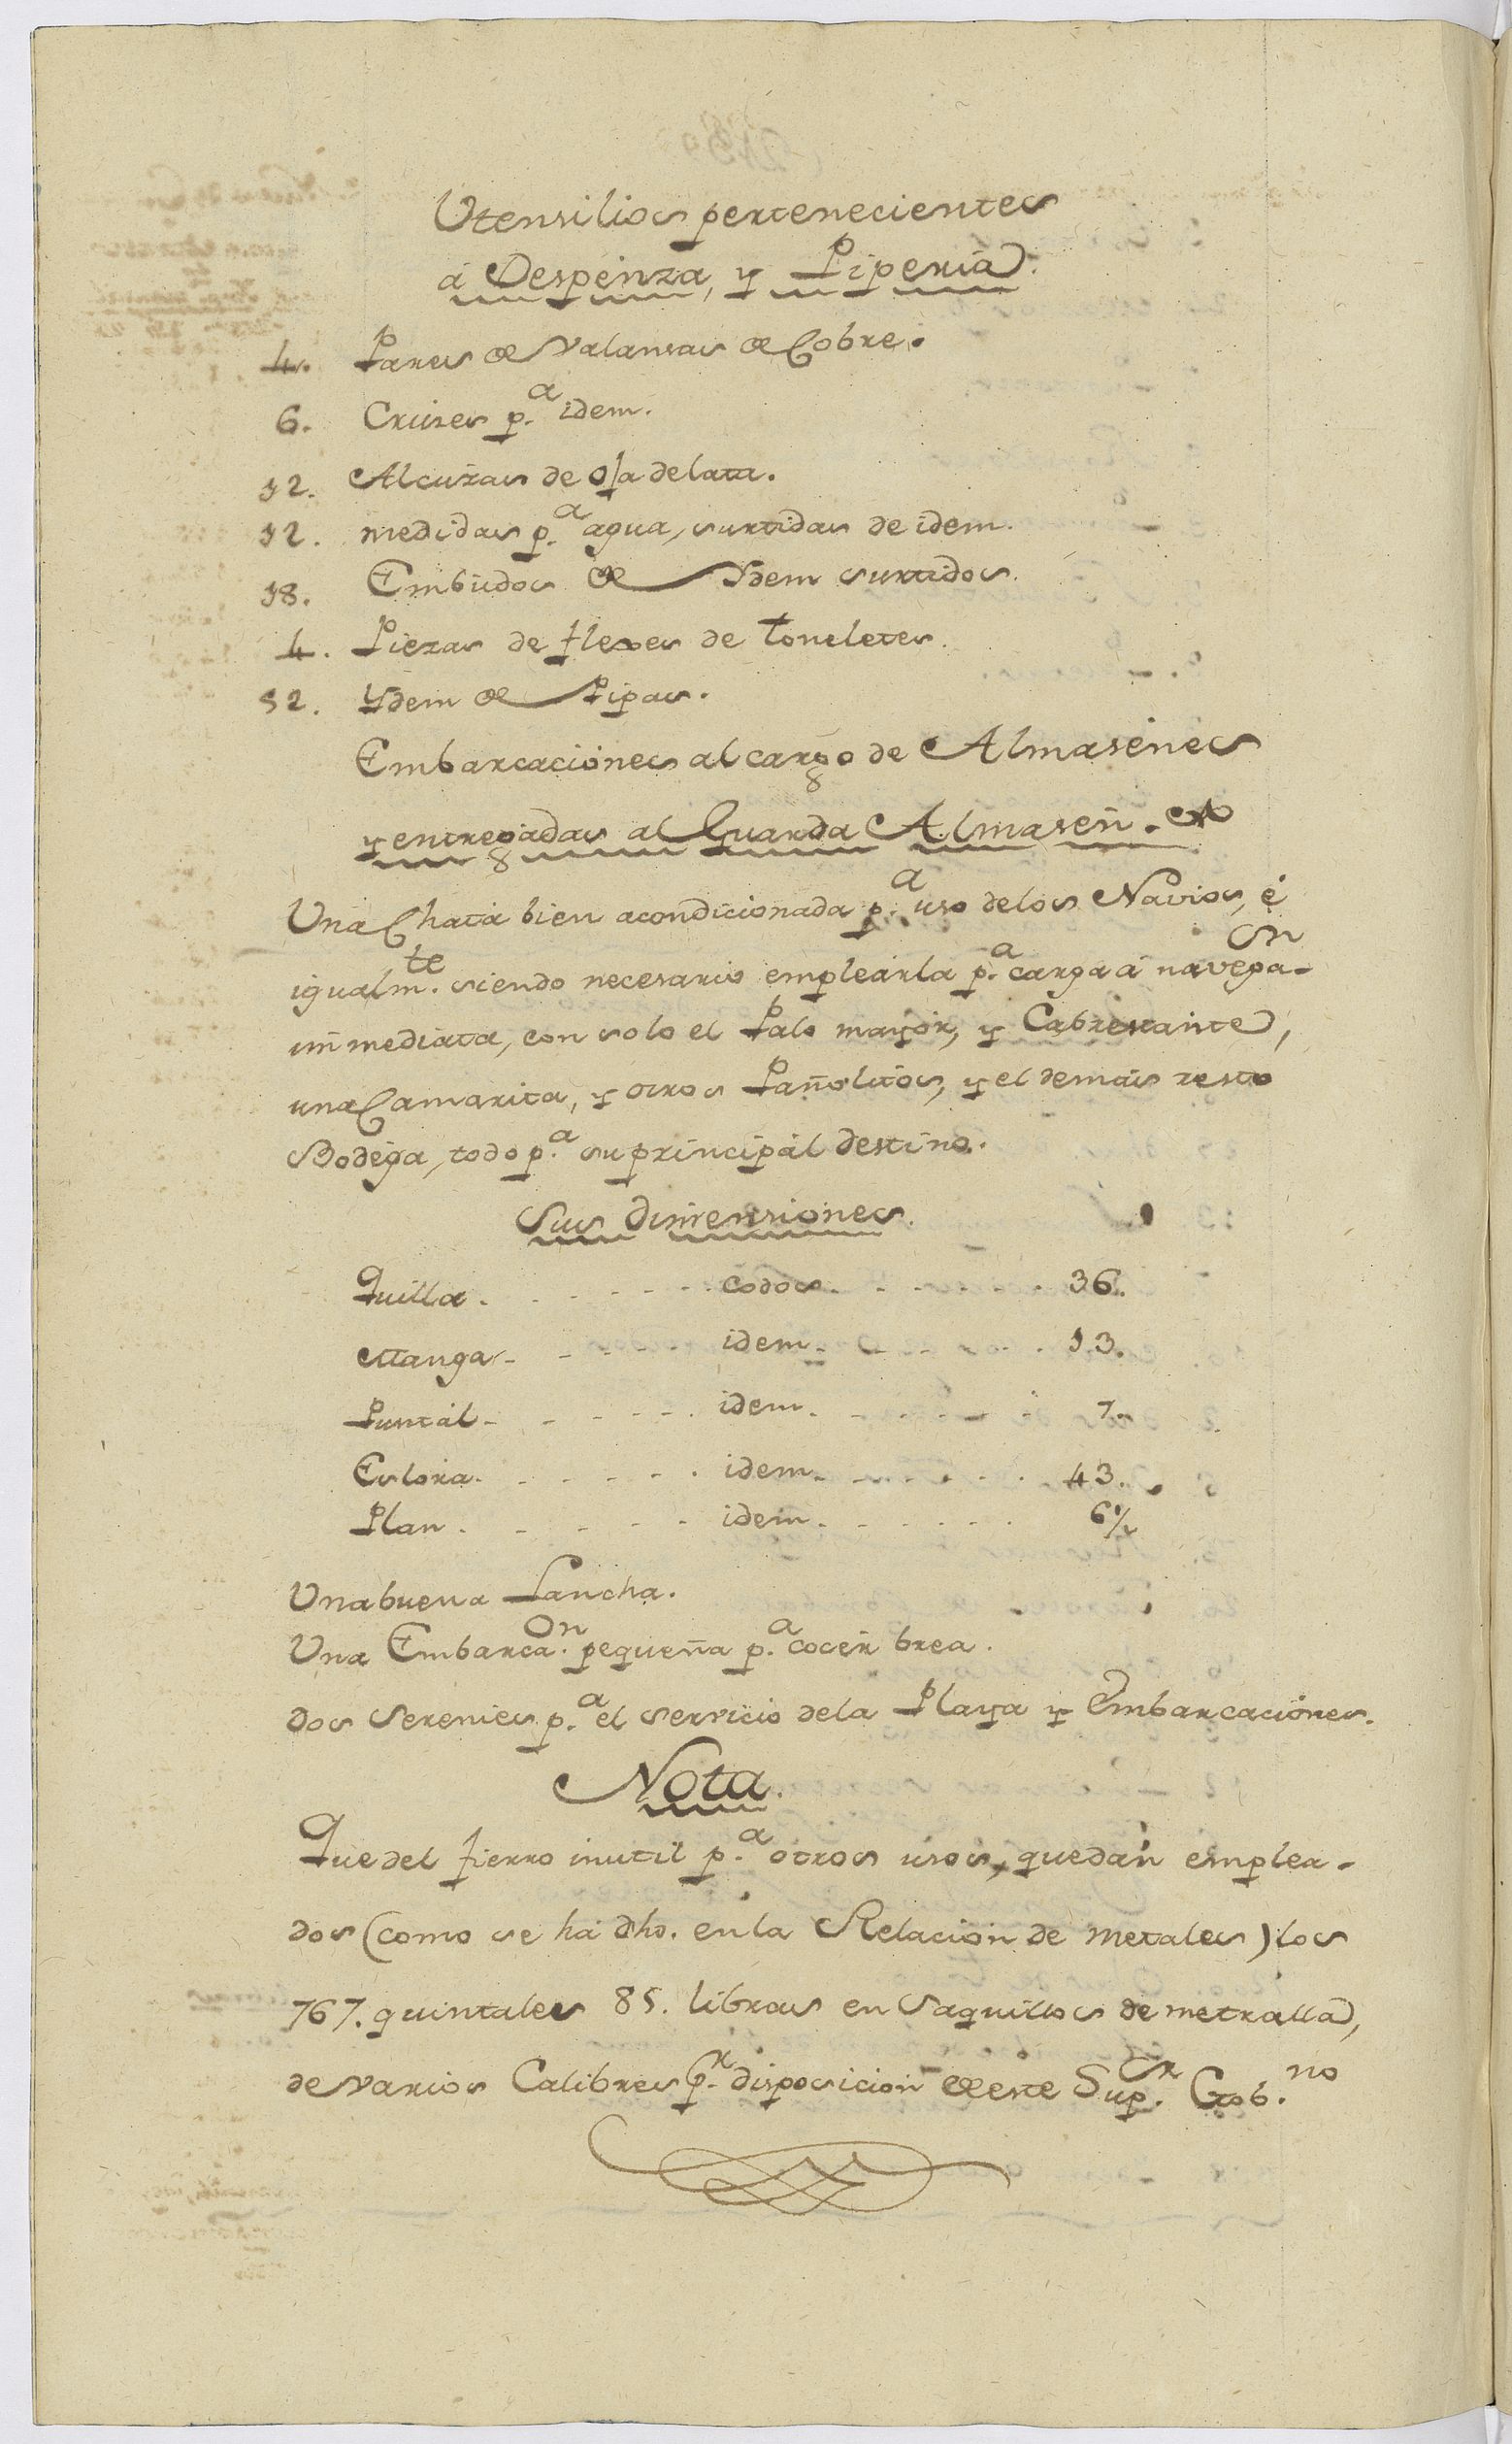 Utensilios pertenecientes
á Despenza, y Piperia.
4. Pares de Valansas de Cobre.
6. Cruzes p.a idem.
12. Alcuzas de oja de lata.
12. medidas p.a agua, surtidas de idem.
18. Embudos de Ydem surtidos.
4. Piezas de flexes de toneletes.
12. Ydem de Pipas.
Embarcaciones al cargo de Almasenes
y entregadas al Guarda Almasen.
Una Chata bien acondicionada p.a uso de los Navios, é
igualm.te siendo necesario emplearla p.a carga á navega-on
inmediata, con solo el Palo mayor, y Cabrestante,
una Camarita, y otros Pañolitos, y el demas resto
Bodega, todo p.a su principal destino.
Sus dimensiones.
Quilla. codos. 36.
Manga. idem. 13.
Puntal. idem. 7.
Eslora. idem. 43.
Plan. idem. 6½
Una buena Lancha.
Una Embarca.on pequeña p.a cocer brea.
dos Serenies p.a el servicio de la Playa y Embarcaciones.
Nota.
Que del fierro inutil p.a otros usos, quedan emplea-
dos (como se ha dho. en la Relacion de metales) los
767. quintales 85. libras en Saquillos de metralla,
de varios Calibres p.r disposicion de este Sup.or Gob.no